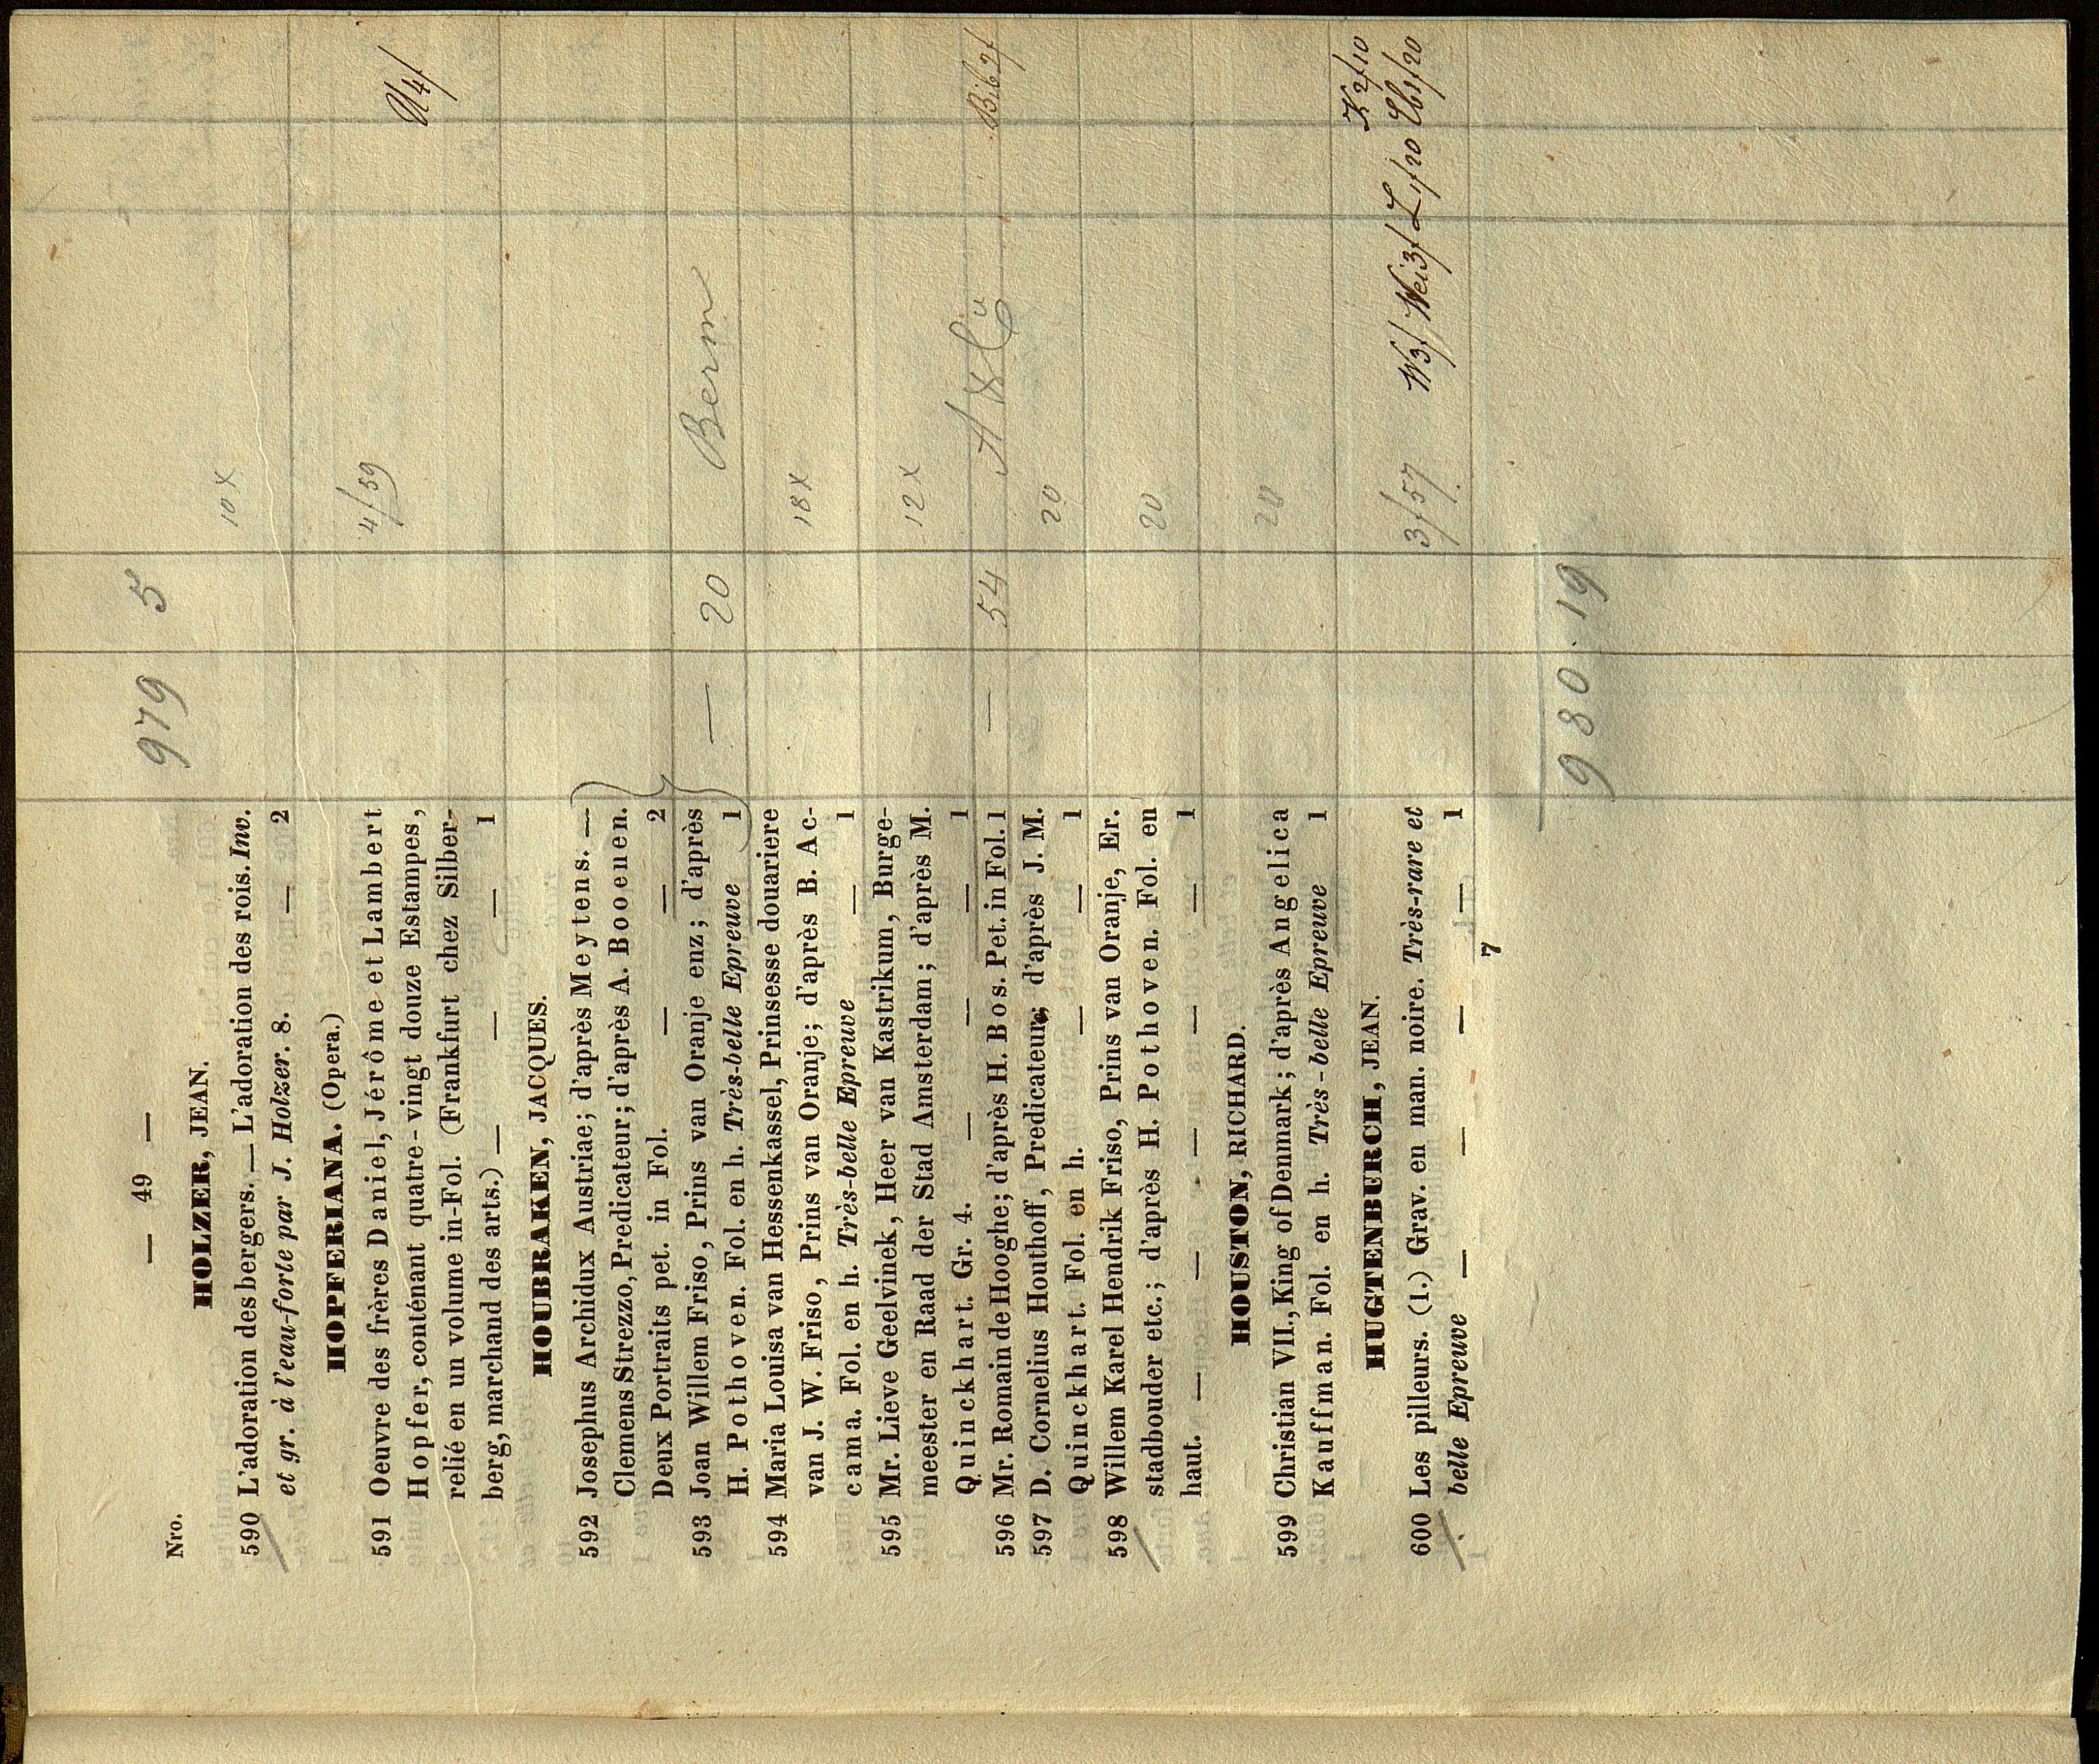 — 49 —
Nro.
979 5
HOLZER, JEAN.
590 L'adoration des bergers. — L'adoration des rois. Inv. 10 x
et gr. à l'eau-forte par J. Holzer. 8. — 2
HOPFERIANA. (Opera.)
591 Oeuvre des frères Daniel, Jérôme et Lambert 4/59
Hopfer, conténant quatre-vingt douze Estampes,
relié en un volume in-Fol. (Frankfurt chez Silber-
berg, marchand des arts.) — — — 1
HOUBRAKEN, JACQUES.
592 Josephus Archidux Austriae; d'après Meytens. —
Clemens Strezzo, Predicateur; d'après A. Booenen.
Deux Portraits pet. in Fol. — — 2
593 Joan Willem Friso, Prins van Oranje enz; d'après
H. Pothoven. Fol. en h. Très-belle Epreuve 1 — 20 Berm
594 Maria Louisa van Hessenkassel, Prinsesse douariere
van J. W. Friso, Prins van Oranje; d'après B. Ac- 18 x
cama. Fol. en h. Très-belle Epreuve — 1
595 Mr. Lieve Geelvinek, Heer van Kastrikum, Burge-
meester en Raad der Stad Amsterdam; d'après M. 12 x
Quinckhart. Gr. 4. — — — 1
596 Mr. Romain de Hooghe; d'après H. Bos. Pet. in Fol. 1 — 54
597 D. Cornelius Houthoff, Predicateur; d'après J. M. 20
Quinckhart. Fol. en h. — — 1
598 Willem Karel Hendrik Friso, Prins van Oranje, Er.
stadbouder etc.; d'après H. Pothoven. Fol. en 20
haut. — — — — — 1
HOUSTON, RICHARD.
599 Christian VII., King of Denmark; d'après Angelica 20
Kauffman. Fol. en h. Très-belle Epreuve 1
HUGTENBURCH, JEAN.
600 Les pilleurs. (1.) Grav. en man. noire. Très-rare et 3f57
belle Epreuve — — — — 1
7
980. 19